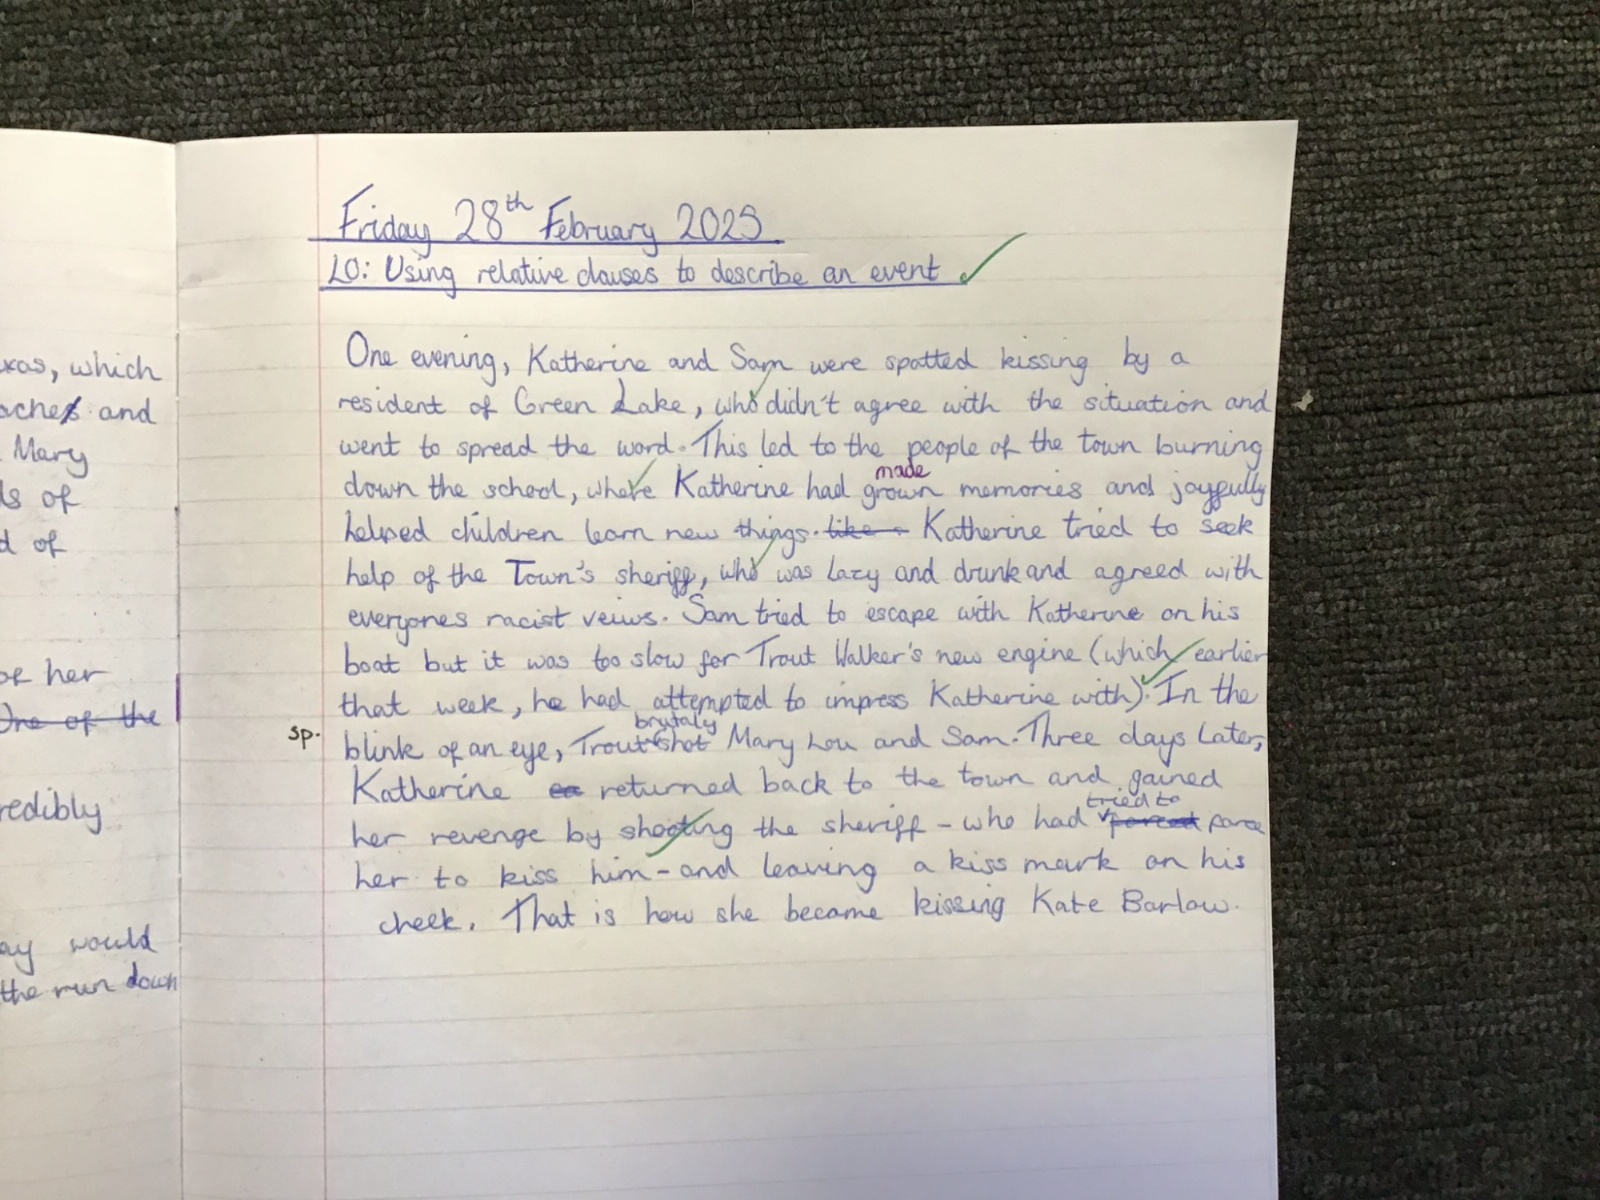 xas, which
ache and
Mary
ls of
d of
her
One of the
redibly
ay would
the run down
Friday 28th February 2025
LO: Using relative clauses to describe an event
One evening, Katherine and Sam were spotted kissing by a
resident of Green Lake, who didn't agree with the situation and
went to spread the word. This led to the people of the town burning
made
down the school, where Katherine had grown memories and joyfully
helped children learn new things. like Katherine tried to seek
help of the Town's sheriff, who was lazy and drunk and agreed with
everyones racist veiws. Sam tried to escape with Katherine on his
boat but it was too slow for Trout Walker's new engine (which earlier
that week, he had attempted to impress Katherine with). In the
brutaly
sp. blink of an eye, Trout shot Mary Lou and Sam. Three days later,
Katherine returned back to the town and gained
tried to
her revenge by shooting the sheriff - who had forced force
her to kiss him - and leaving a kiss mark on his
cheek. That is how she became kissing Kate Barlow.